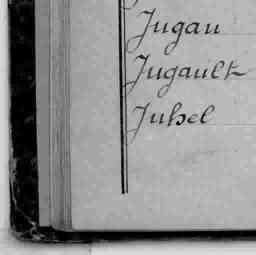 Jugan
Jugault
Juhel